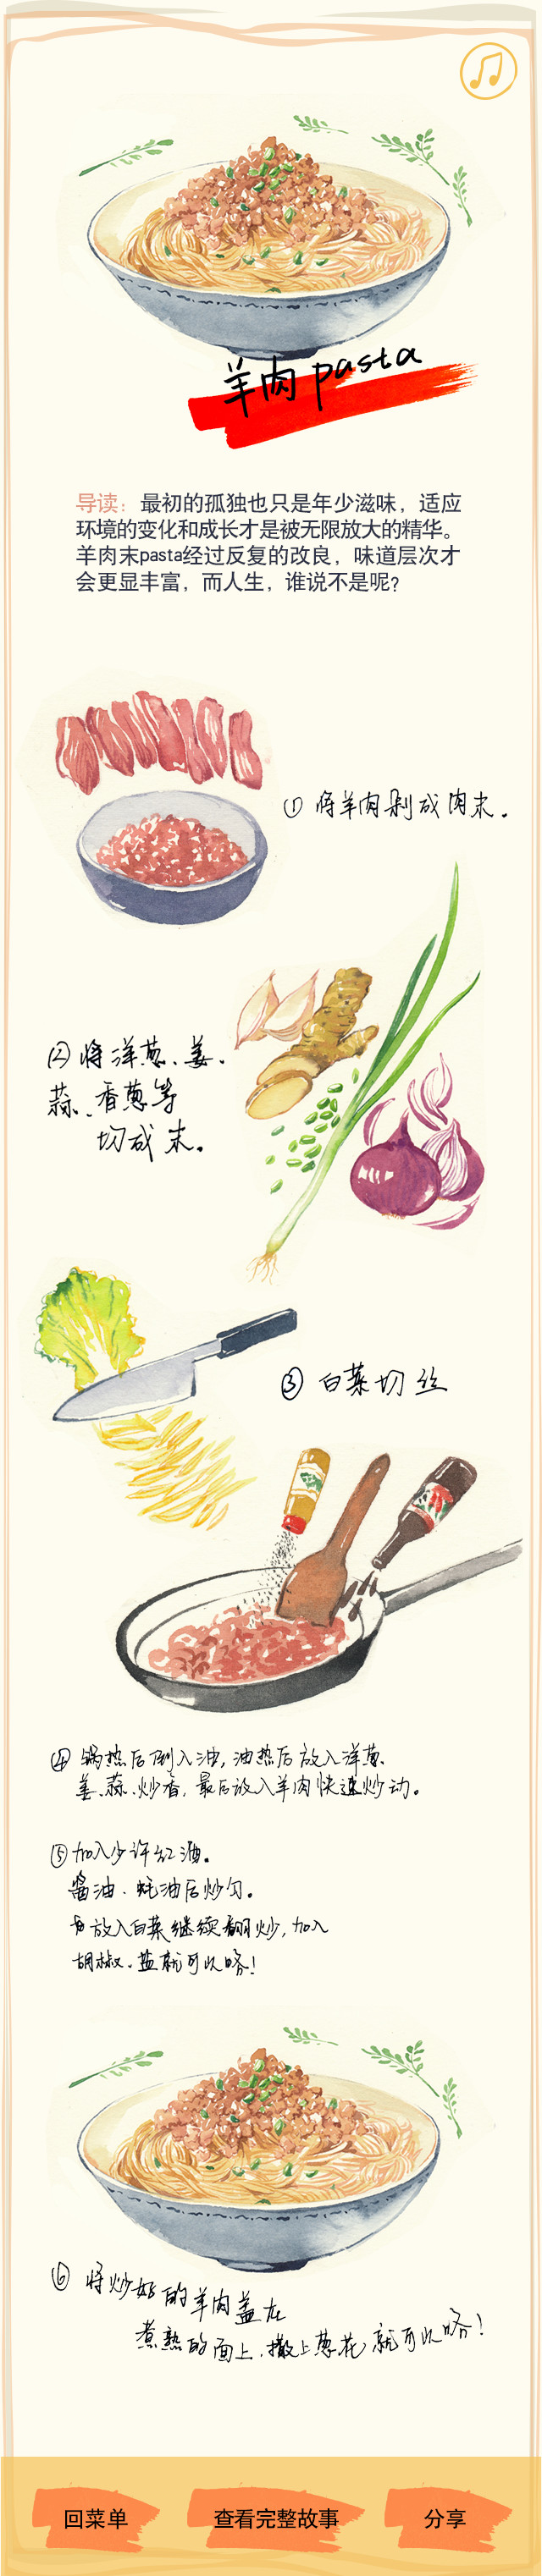 羊肉 pasta
导读：最初的孤独也只是年少滋味，适应
环境的变化和成长才是被无限放大的精华。
羊肉末pasta经过反复的改良，味道层次才
会更显丰富，而人生，谁说不是呢？
① 将羊肉剁成肉末。
② 将洋葱、姜、
蒜、香葱等
切成末。
③ 白菜切丝
④ 锅热后倒入油，油热后放入洋葱、
姜、蒜、炒香，最后放入羊肉快速炒动。
⑤ 加入少许红酒。
酱油、蚝油后炒匀。
放入白菜继续翻炒，加入
胡椒、盐就可以咯！
⑥ 将炒好的羊肉盖在
煮熟的面上，撒上葱花就可以咯！
回菜单
查看完整故事
分享